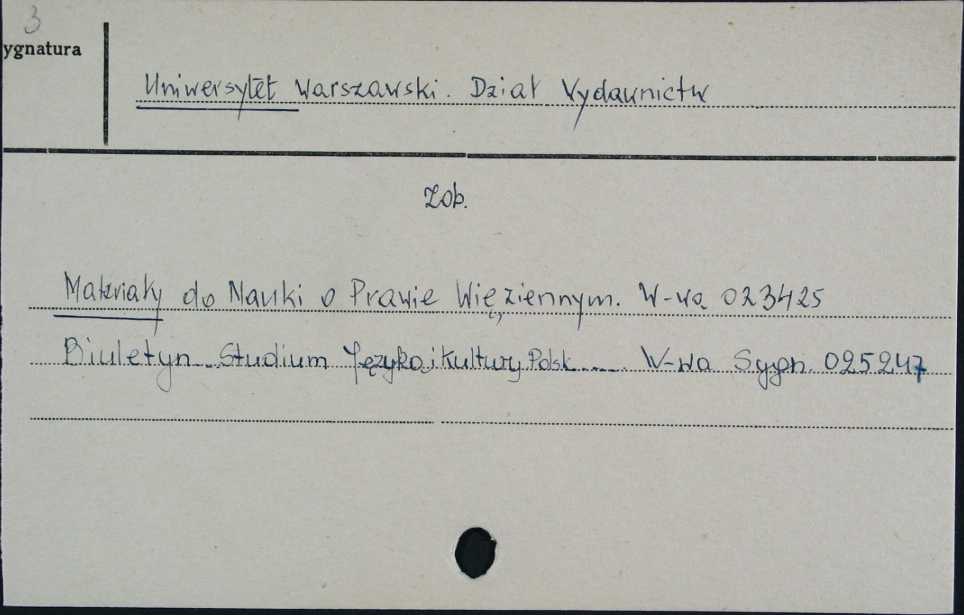 3
ygnatura
Uniwersytet Warszawski. Dział Wydawnictw
Zob.
Materiały do Nauki o Prawie Więziennym. W-wa 023425
Biuletyn Studium Języka i Kultury Polsk..... W-wa Sygn. 025247